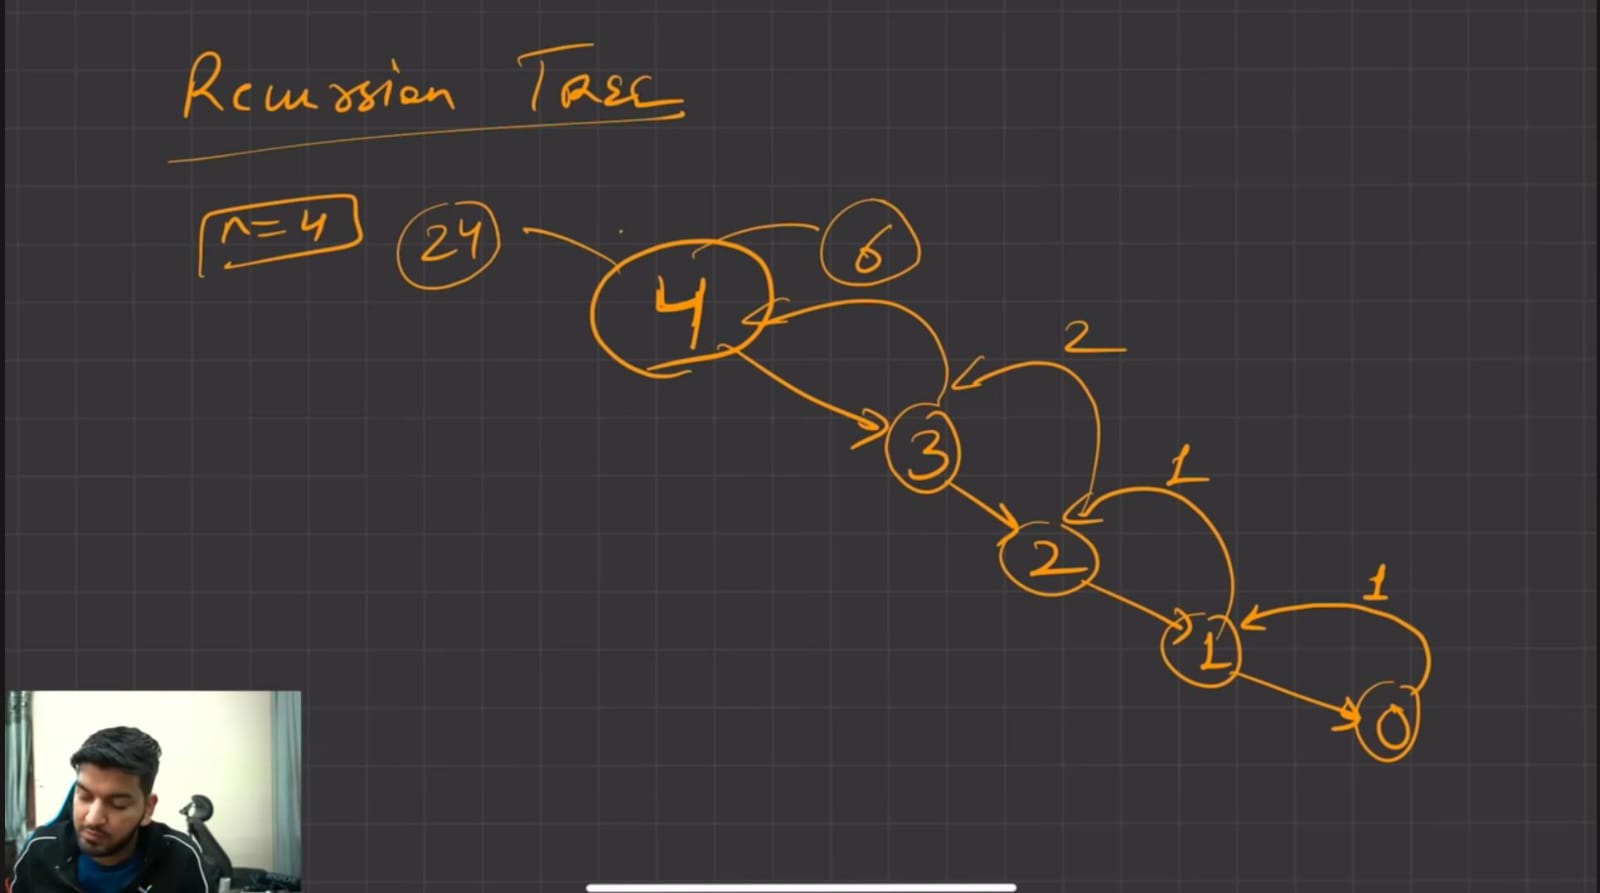 Recursion Tree
n=4
24
6
4
2
3
1
2
1
1
0